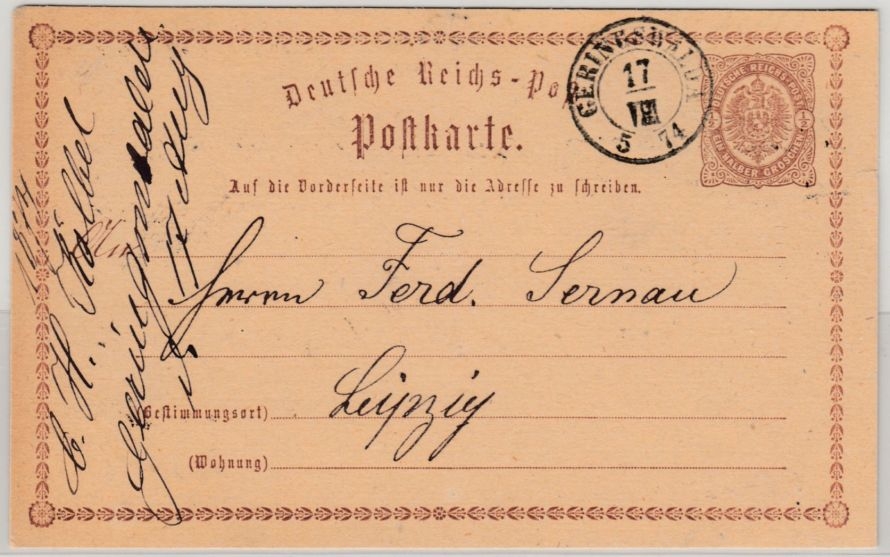 Deutsche Reichs-Po
Postkarte.
GERINGSWALDA
17
VIII
5 74
DEUTSCHE REICHS-POST
½ ½
EIN HALBER GROSCHEN
Auf die Vorderseite ist nur die Adresse zu schreiben.
An
Herrn Ferd. Sernau
Leipzig
(Bestimmungsort)
(Wohnung)
C. H. Kölbel
Geringswalde
1874